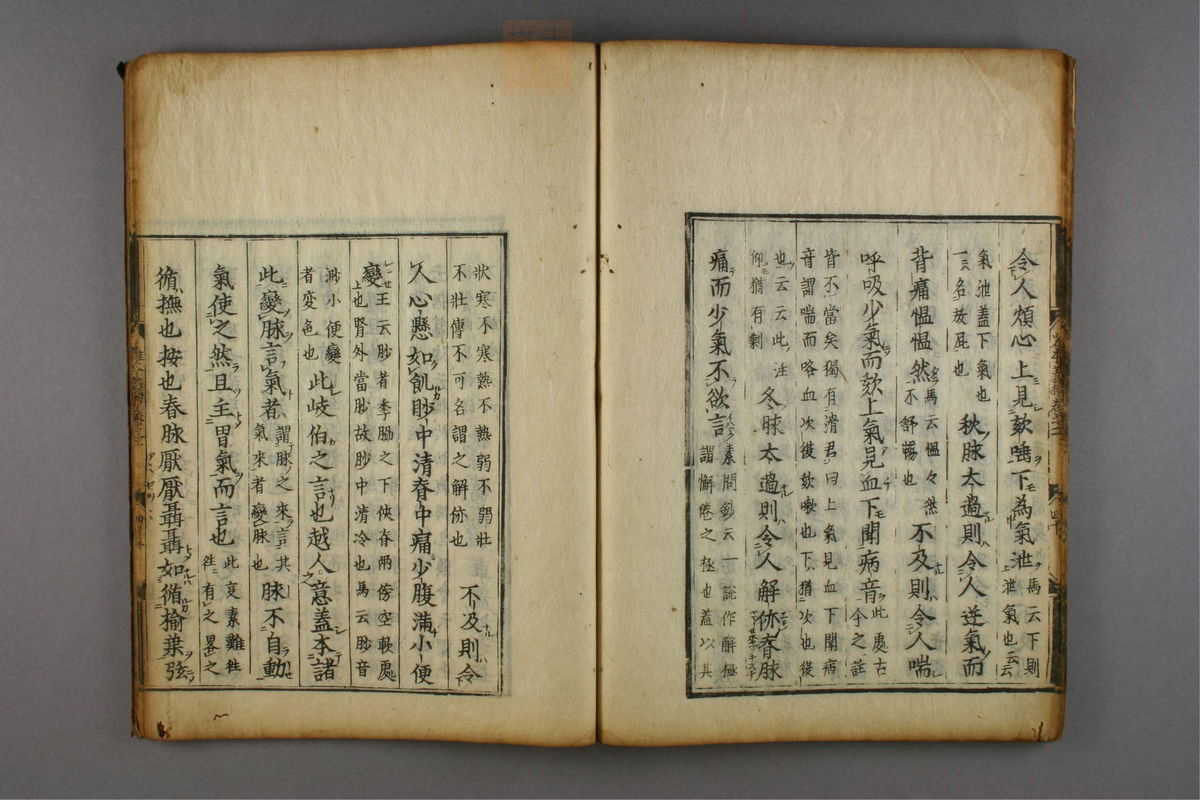 令人煩心上見欬唾下為氣泄馬云下則上泄氣也云云
氣泄蓋下氣也一名放屁也秋脉太過則令人逆氣而
背痛慍慍然馬云慍々然不舒暢也不及則令人喘
呼吸少氣而欬上氣見血下聞病音此處古今之註
皆不當矣獨有滑君曰上氣見血下聞病
音謂喘而咯血次復欬嗽也下猶次也復
也云云此注仰猶有剩冬脉太過則令人解㑊脊脉
痛而少氣不欲言素問鈔云一説作解極謂懈倦之極也蓋以其
狀寒不寒熱不熱弱不弱壯不壯儜不可名謂之解㑊也不及則令
人心懸如飢䏚中清脊中痛少腹滿小便
變王云䏚者季脇之下俠脊兩傍空軟處上也腎外當䏚故䏚中清冷也馬云䏚音
渺小便變者変色也此岐伯之言也越人之意蓋本諸
此變脉言氣者謂脉之來言其氣來者變脉也脉不自動
氣使之然且主胃氣而言也此変素難徃徃有之畧之
循撫也按也春脉厭厭聶聶如循榆葉弦